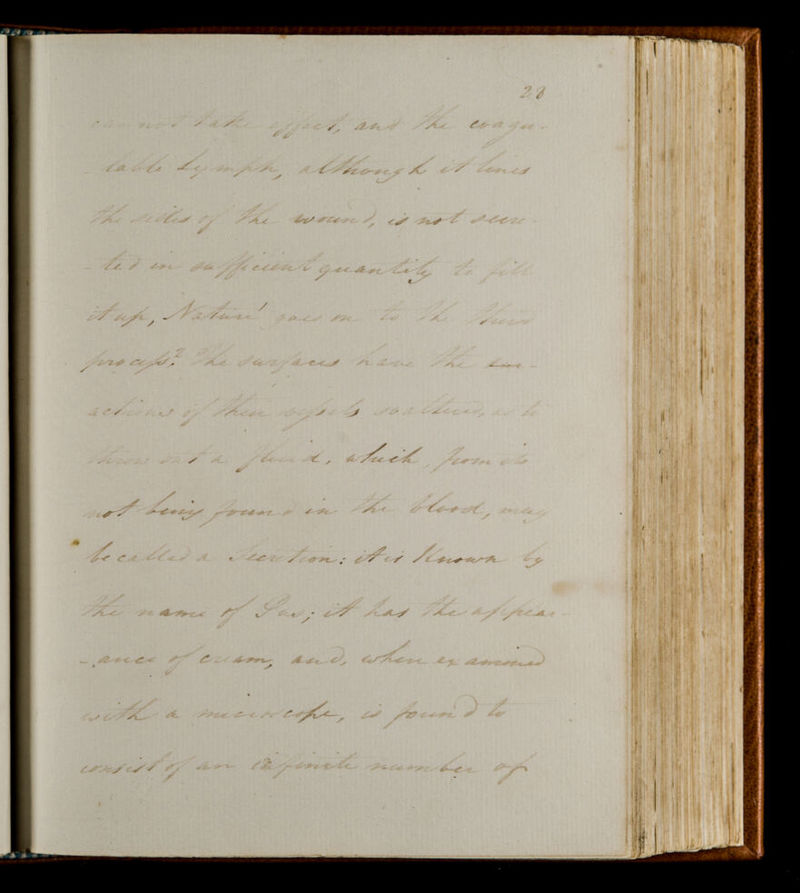 28
cannot take effect, and the coagu-
-lable Lymph, although it lines
the sides of the wound, is not secre-
-ted in sufficient quantity to fill
it up, Nature goes on to the third
process. The surfaces have the
actions of their vessels so altered, as to
throw out a fluid, which, from its
not being found in the blood, may
be called a Secretion: it is Known by
the name of Pus; it has the appear-
-ance of cream, and, when examined
with a microscope, is found to
consist of an infinite number of